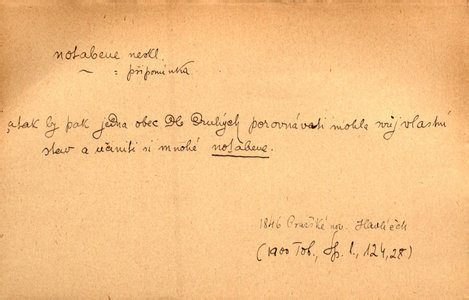 notabene neskl.
~ = připomínka
„a tak by pak jedna obec Dle Druhých porovnávati mohla svůj vlastní
stav a učiniti si mnohé notabene.
1846 Pražské nov. Havlíček
(1900 Tob., Sp. I., 124, 28)